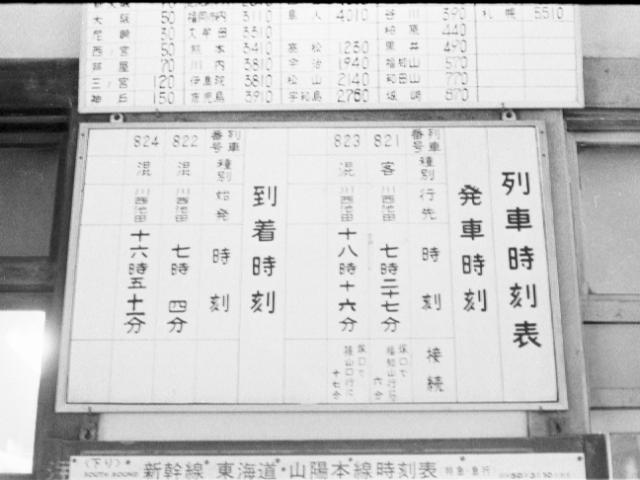 阪 50
崎 50
西 宮 50
70
三 宮 120
150
内 3110
田 3310
熊 本 3410
川 内 3810
伊 集 院 3810
鹿 児 島 3910
4010
高 松 1230
今 治 1940
松 山 2140
宇和島 2750
谷 川 390
柏 原 440
黒 井 490
福知山 570
和田山 770
城 崎 970
札 幌 5510
列車時刻表
発車時刻
列車番号 種別 行先 時刻 接続
821 客 川西池田 七時二十七分 塚口で福知山行に 六分
823 混 川西池田 十八時十六分 塚口で篠山口行に 十七分
到着時刻
列車番号 種別 始発 時刻
822 混 川西池田 七時 四分
824 混 川西池田 十六時五十一分
(下り)
SOUTH BOUND
新幹線*東海道・山陽本線時刻表
特急・急行